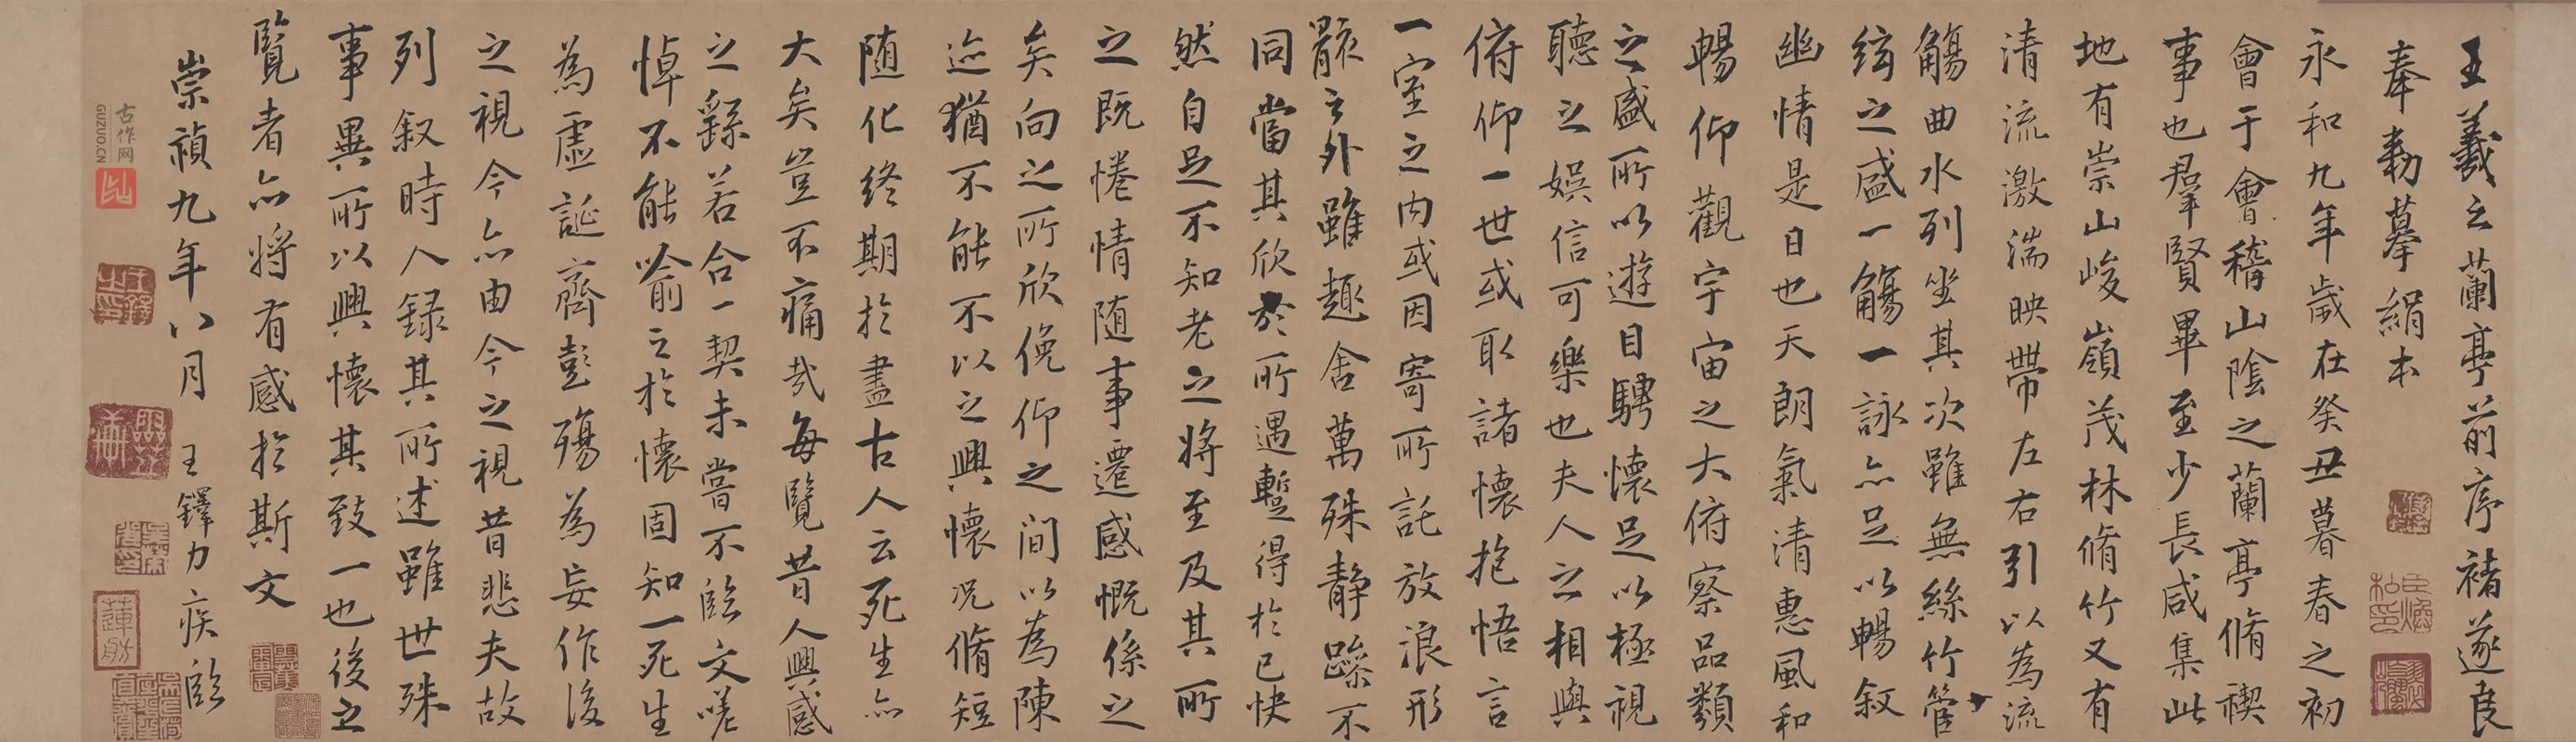 王羲之蘭亭前序褚遂良
奉勅摹絹本
永和九年歲在癸丑暮春之初
會于會稽山陰之蘭亭脩禊
事也羣賢畢至少長咸集此
地有崇山峻嶺茂林脩竹又有
清流激湍映帶左右引以為流
觴曲水列坐其次雖無絲竹管
絃之盛一觴一詠亦足以暢叙
幽情是日也天朗氣清惠風和
暢仰觀宇宙之大俯察品類
之盛所以遊目騁懷足以極視
聽之娛信可樂也夫人之相與
俯仰一世或取諸懷抱悟言
一室之內或因寄所託放浪形
骸之外雖趣舍萬殊靜躁不
同當其欣於所遇蹔得於己快
然自足不知老之將至及其所
之既惓情随事遷感慨係之
矣向之所欣俛仰之間以為陳
迹猶不能不以之興懷況脩短
随化終期於盡古人云死生亦
大矣豈不痛哉每覽昔人興感
之繇若合一契未嘗不臨文嗟
悼不能喻之於懷固知一死生
為虛誕齊彭殤為妄作後
之視今亦由今之視昔悲夫故
列叙時人録其所述雖世殊
事異所以興懷其致一也後之
覽者亦將有感於斯文
崇禎九年八月 王鐸力疾臨
蓮舫
古作网
GUZUO.CN